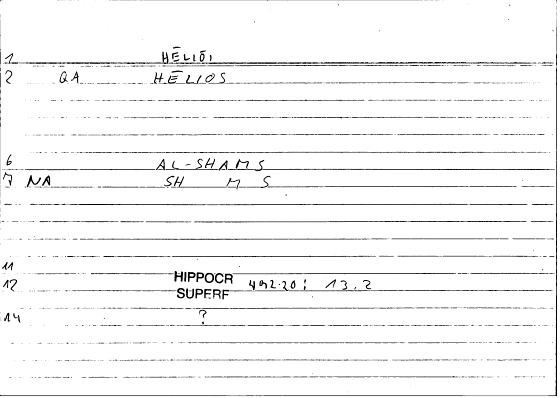 1 HĒLIŌI
2 QA HĒLIOS
6 AL-SHAMS
7 NA SH M S
11
12 HIPPOCR SUPERF 492.20: 13.2
14 ?